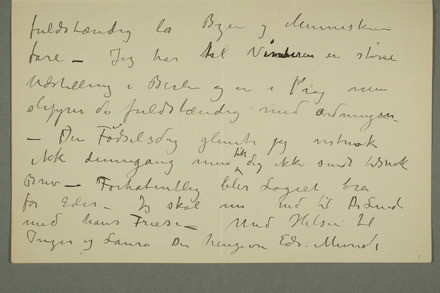 fuldstændig la Byen og Mennesken
fare – Jeg har til Vinteren en større
Udstilling i Berlin og en i Prag men
slipper da fuldstændig med ordningen
– Din Fødselsdag glemte jeg
ikke denne gang men fik dog ikke sendt
Brev – Forhaabentlig blir Logiet bra
for Eder – Jeg skal nu ned til Dr Linde
med hans Friese – Med Hilsen til
Inger og Laura Din hengivne Edv. Munch